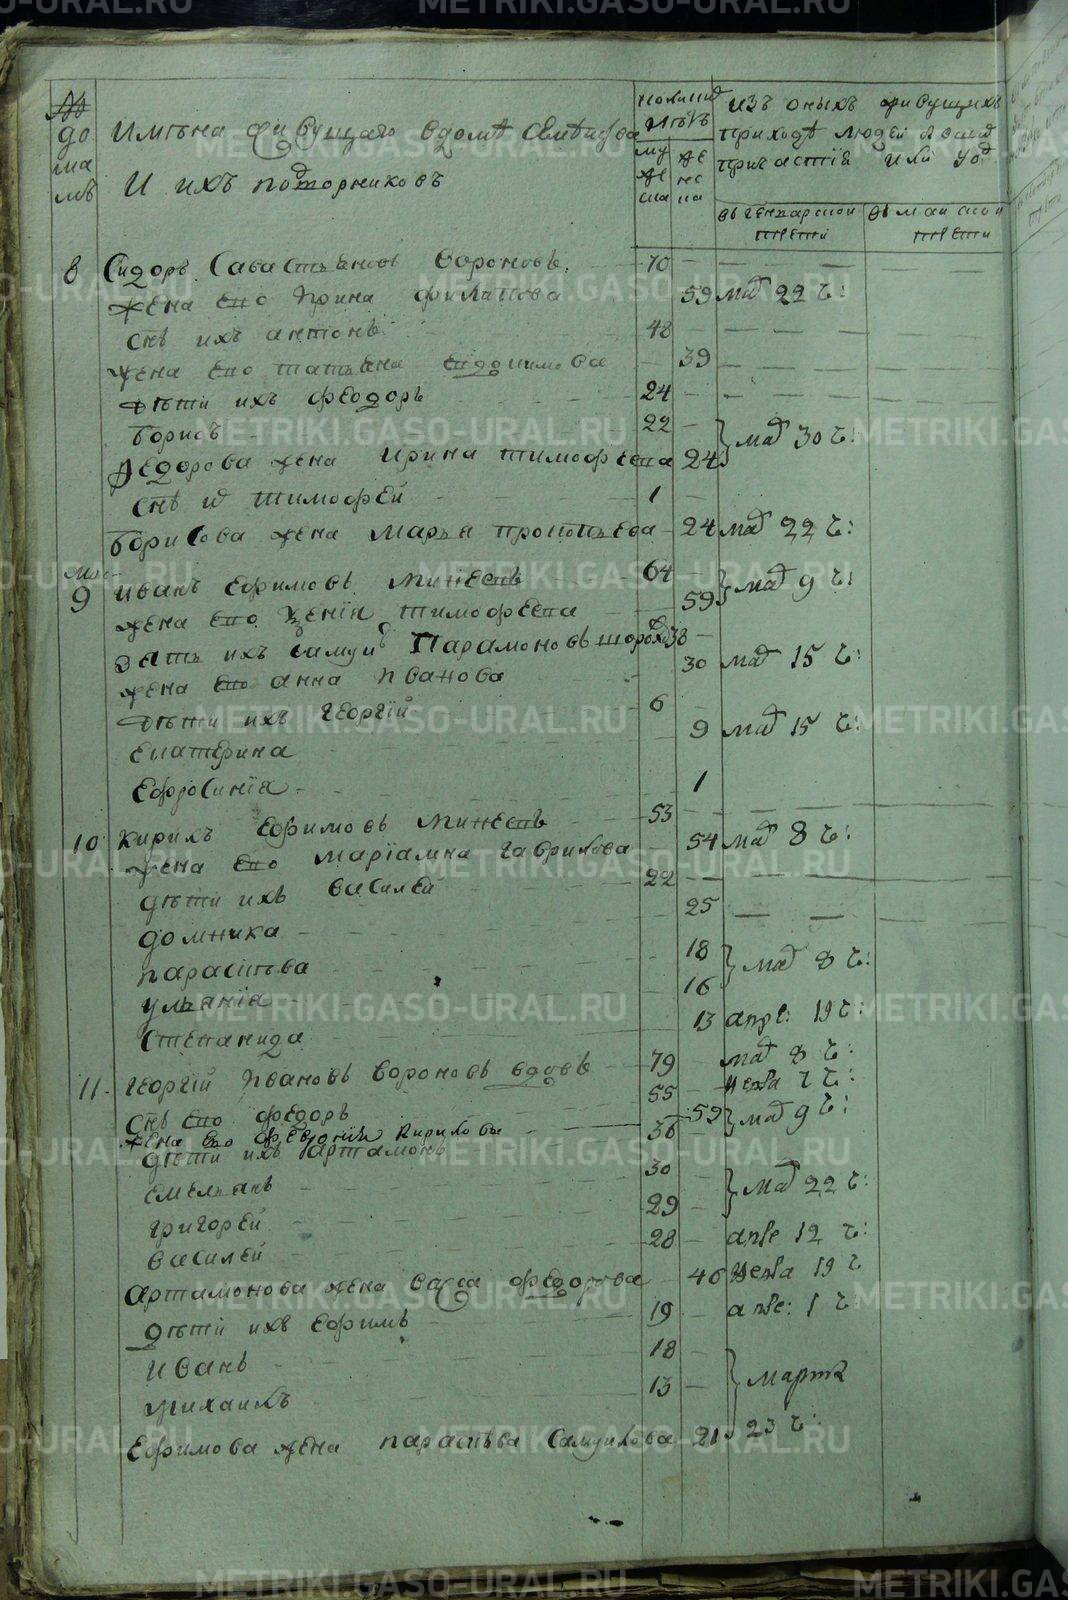 № домамъ
Имѣна живущаго в домѣ
И ихъ подворниковъ
коликихъ лѣтъ
мужеска
женска
изъ оныхъ живущихъ
приходѣ людей
причастіѣ или
въ генварской трети
въ маиской трети
8 Сидоръ Савастьяновъ вороновъ 70
жена ево Ирина филатова 59 маѧ 22 ч:
снъ ихъ антонъ 48
жена ево татьяна евдокимова 39
дѣти ихъ феодоръ 24
борисъ 22 маѧ 30 ч:
Федорова жена ирина тимофеева 24
снъ их тимофей 1
борисова жена марья прокопьева 24 маѧ 22 ч:
9 иванъ ефимовъ минеевъ 64 маѧ 9 ч:
жена ево ѯенія тимофеева 59
зять ихъ самуил Парамоновъ 38
жена ево анна иванова 30 маѧ 15 ч:
дѣти ихъ георгій 6
екатерина 9 маѧ 15 ч:
ефросинія 1
10 кирилъ ефимовъ минеевъ 53
жена ево маріамна гаврилова 54 маѧ 8 ч:
дѣти ихъ василей 22
домника 25
парасковья 18 маѧ 8 ч:
ульянія 16
степанида 13 апре: 19 ч:
11. георгій ивановъ вороновъ вдовъ 79 маѧ 8 ч:
снъ ево федоръ 55
жена ево февронія кирилова 59 маѧ 9 ч:
дѣти ихъ артамонъ 36
емельянъ 30 маѧ 22 ч:
григорей 29
василей 28 апре 12 ч:
артамонова жена васса федорова 40 19 ч
дѣти ихъ ефимъ 19 апре: 1 ч:
иванъ 18 марта
михаилъ 13
ефимова жена парасковья самуилова 21 23 ч:
METRIKI.GASO-URAL.RU